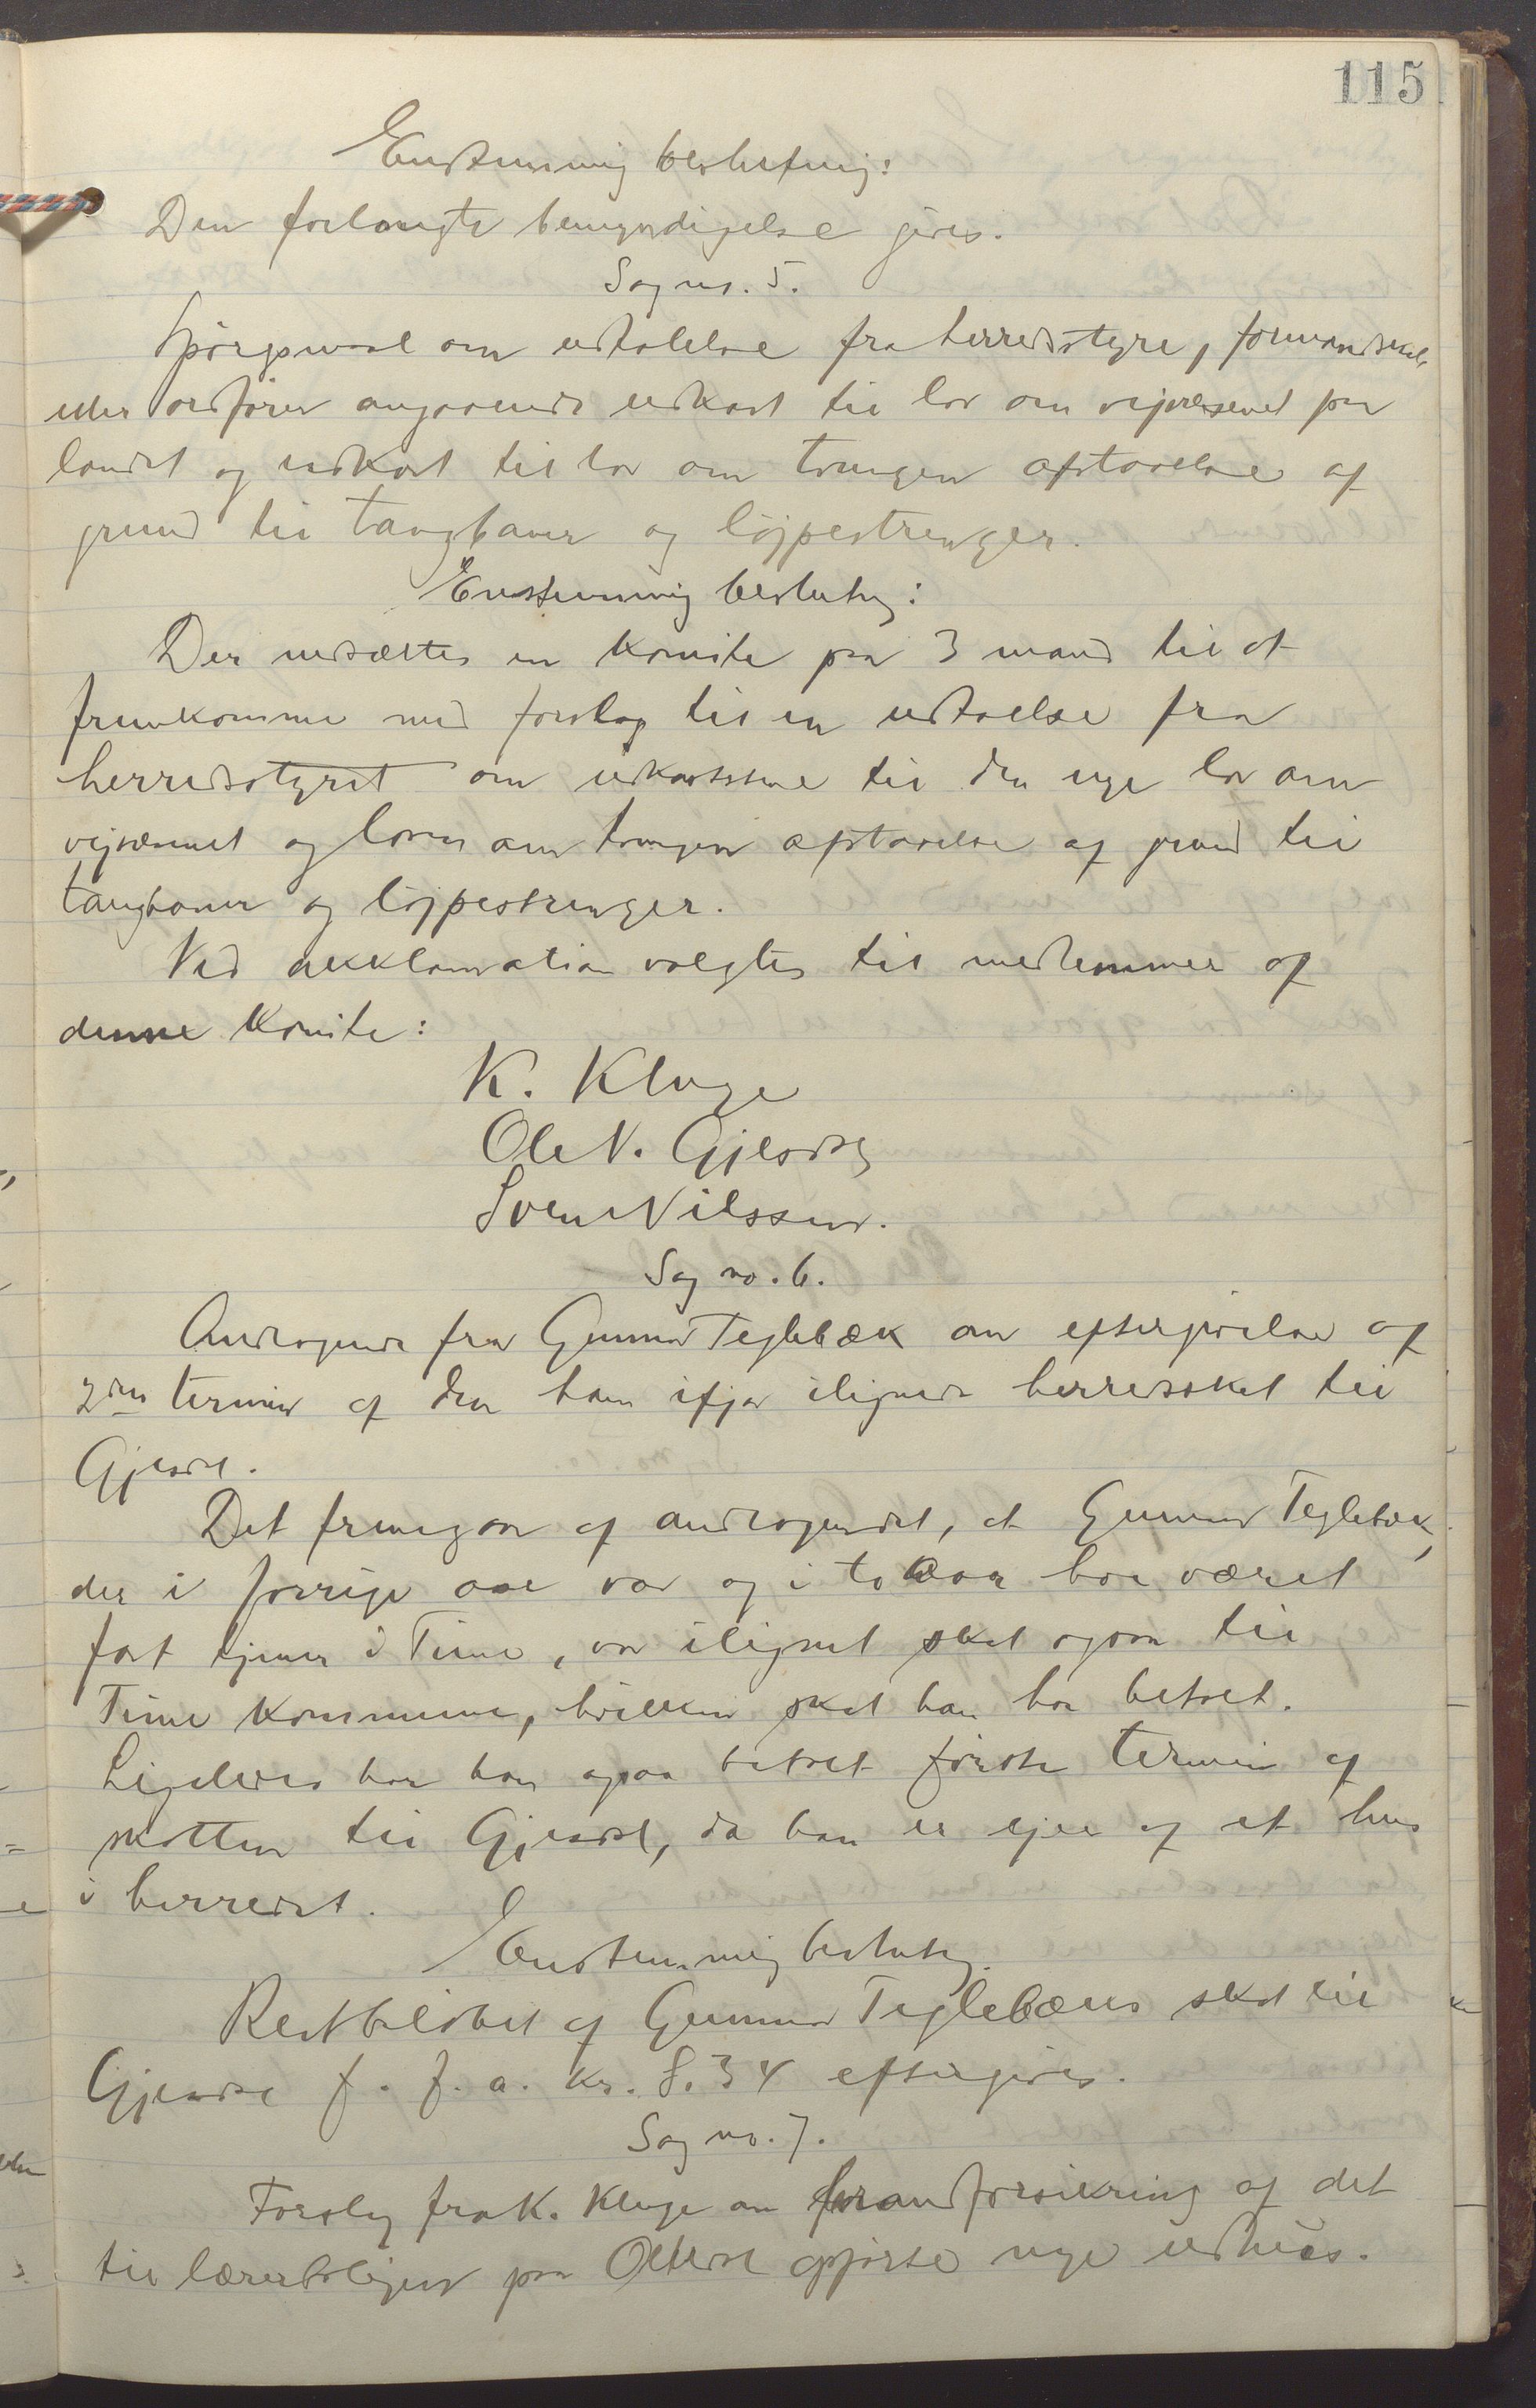 115
Enstemmig beslutning:
Den forlangte bemyndigelse gives.
Sag no. 5.
Spørgsmaal om udtalelse fra herredsstyre, formandskab
eller ordfører angaaende udkast til lov om vejvæsenet paa
landet og udkast til lov om tvungen afstaaelse af
grund til taugbaner og løjpestrenger.
Enstemmig beslutng:
Der nedsættes en komite paa 3 mand til at
fremkomme med forslag til en udtalelse fra
herredsstyret om udkastene til den nye lov om
vejvæsenet og loven om tvungen afstaaelse af grund til
taugbaner og løjpestrenger.
Ved akklamation valgtes til medlemmer af
denne komite:
K. Kluge
Ole N. Gjesdal
Sven Nilssen.
Sag no. 6.
Andragende fra Gunnar Teglebæk om eftergivelse af
2den termin af den ham ifjor ilignede herredsskat til
Gjesdal.
Det fremgaar af andragendet, at Gunnar Teglebæk,
der i forrige aar var og i to aar har været
fast tjener i Time, var ilignet skat ogsaa til
Time kommune, hvilken skat han har betalt.
Ligeledes har han ogsaa betalt første termin af
skatten til Gjesdal, da han er ejer af et hus
i herredet.
Enstemmig beslutng.
Restbeløbet af Gunnar Teglebæks skat til
Gjesdal f. f. a. kr. 8.34 eftergives.
Sag no. 7.
Forslag fra K. Kluge om brandforsikring af det
til lærerboligen paa Oltedal opførte nye udhus.